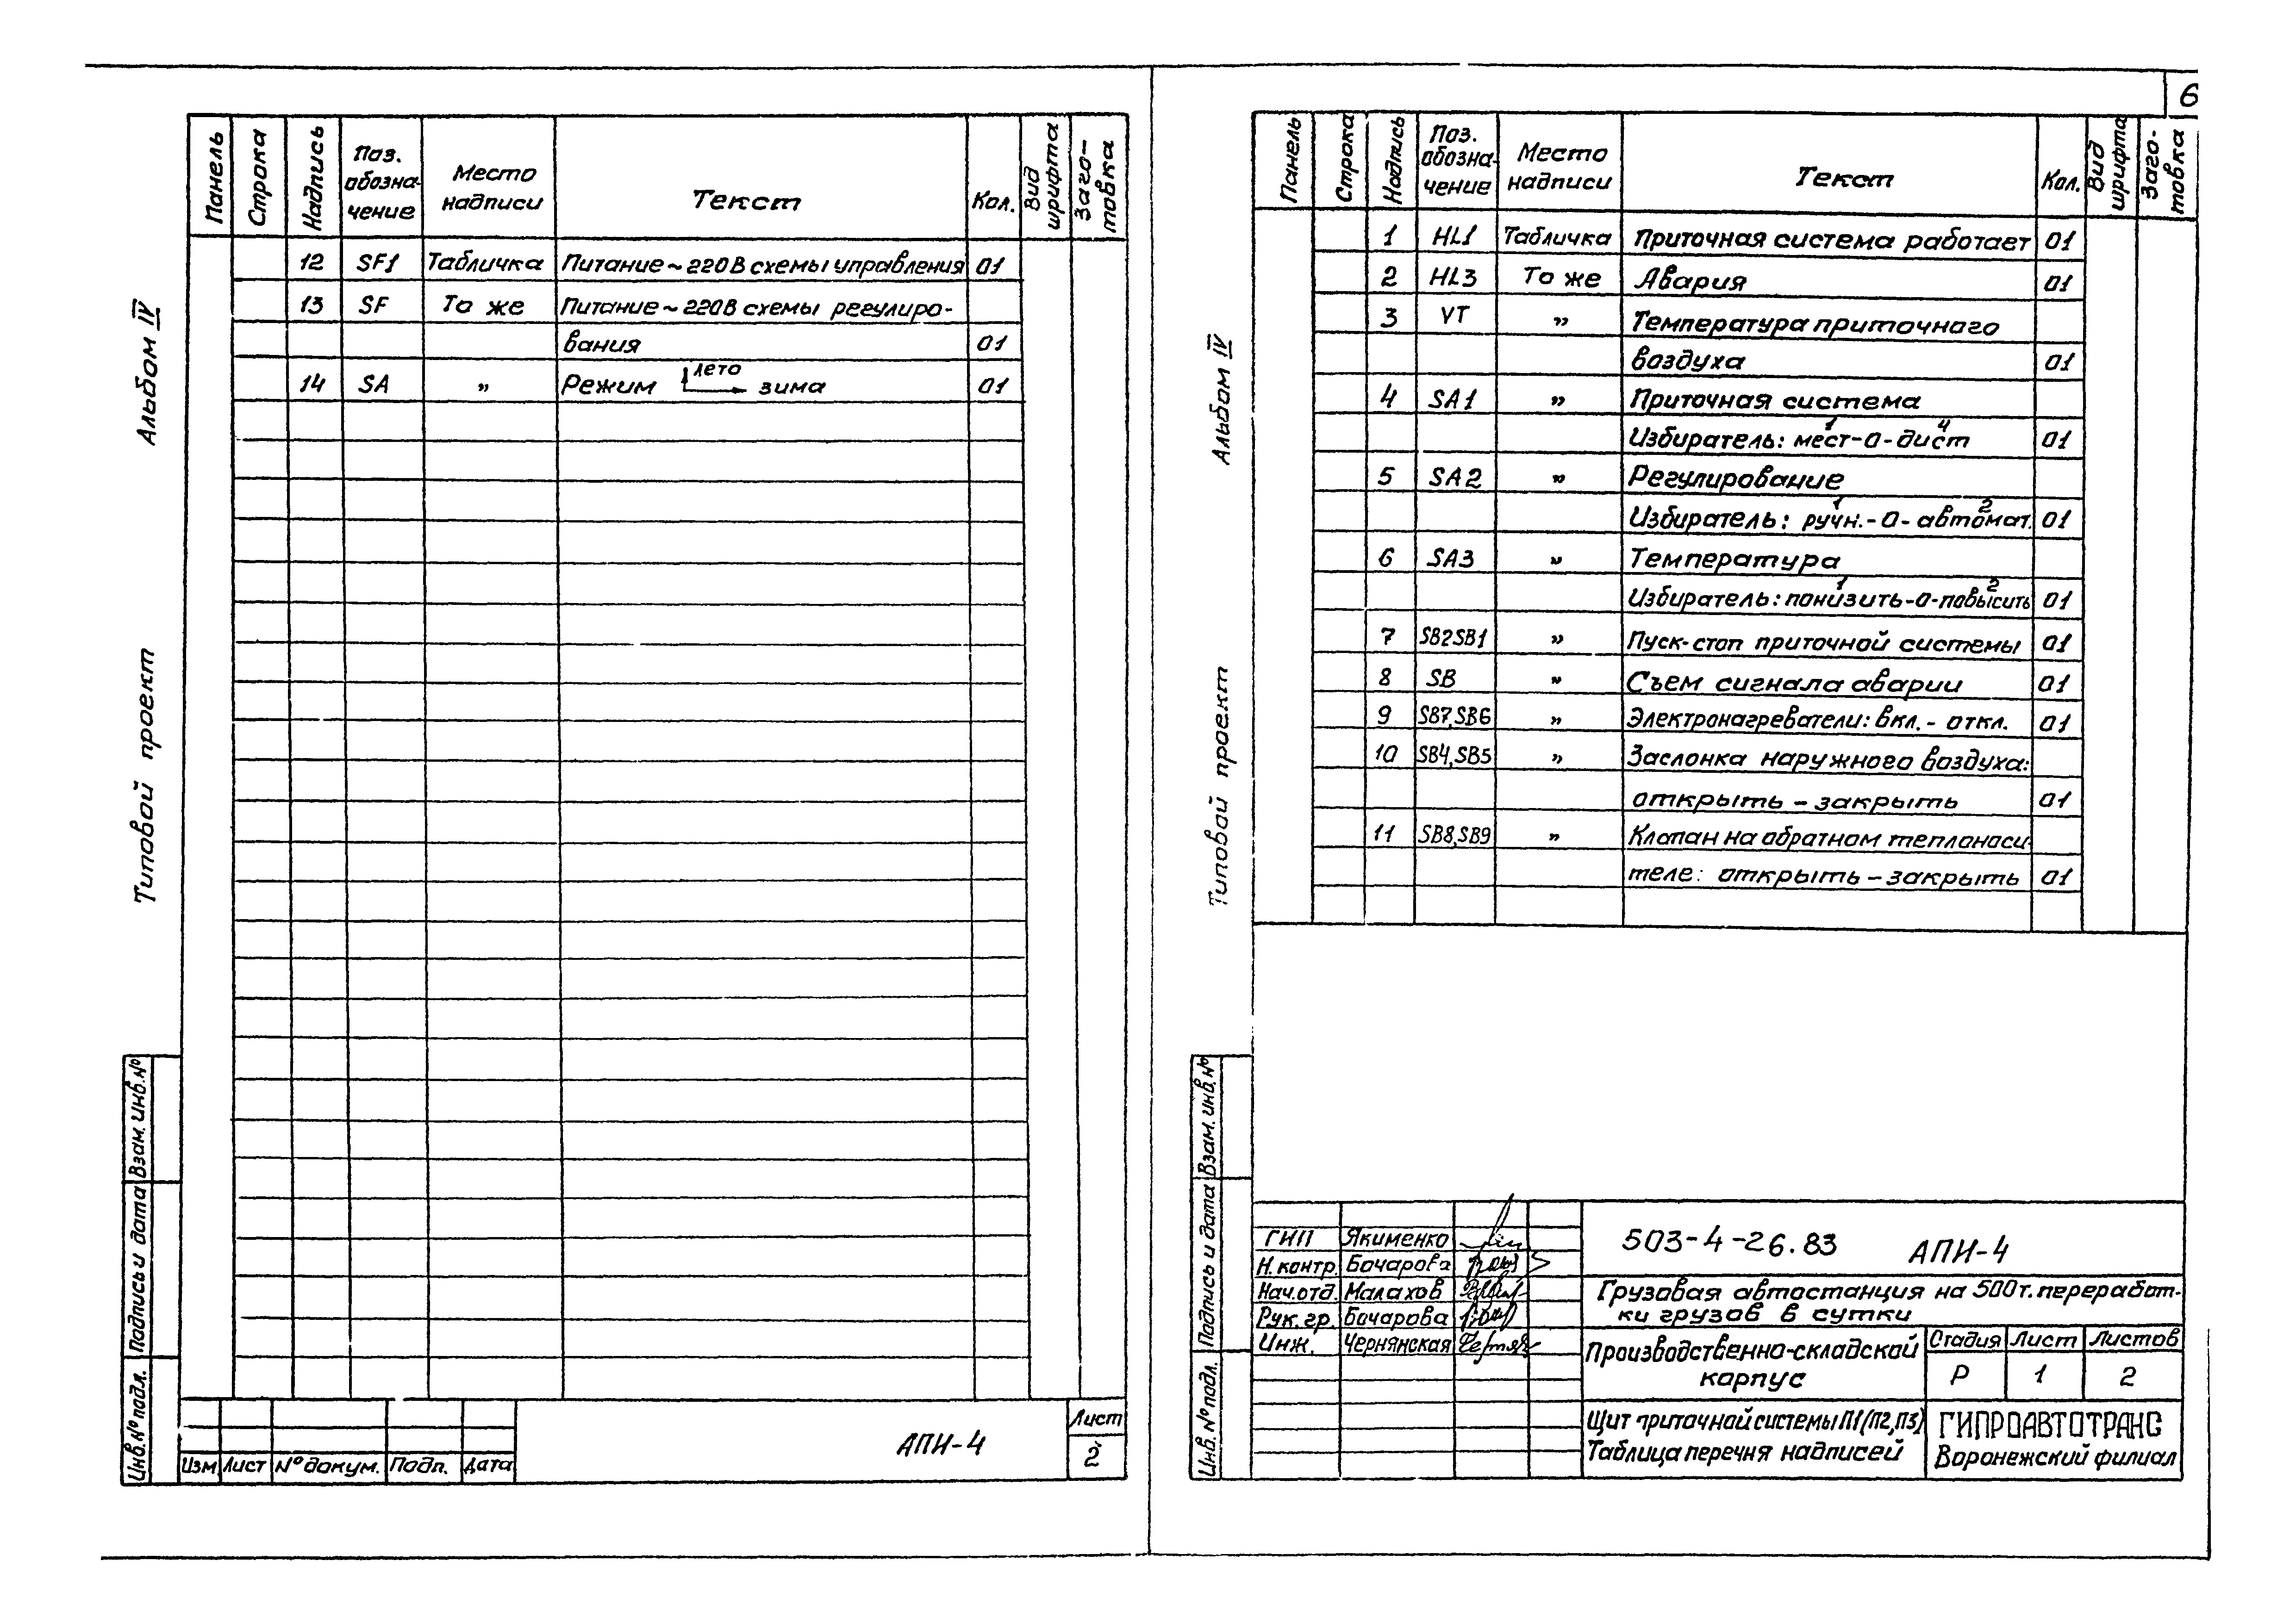 6
Альбом IV
Типовой проект
Панель Строка Надпись Поз. обозна-чение Место надписи Текст Кол. Вид шрифта Заго-товка
12 SF1 Табличка Питание ~ 220В схемы управления 01
13 SF То же Питание ~ 220В схемы регулиро-
вания 01
14 SA " Режим лето зима 01
Взам. инв. №
Подпись и дата
Инв. № подл.
Изм Лист № докум. Подп. Дата
АПИ-4
Лист
2
Альбом IV
Типовой проект
Панель Строка Надпись Поз. обозна-чение Место надписи Текст Кол. Вид шрифта Заго-товка
1 HL1 Табличка Приточная система работает 01
2 HL3 То же Авария 01
3 VT " Температура приточного
воздуха 01
4 SA1 " Приточная система
1 4
Избиратель: мест-О-дист 01
5 SA2 " Регулирование
1 2
Избиратель: ручн.-О-автомат. 01
6 SA3 " Температура
1 2
Избиратель: понизить-О-повысить 01
7 SB2SB1 " Пуск-стоп приточной системы 01
8 SB " Съем сигнала аварии 01
9 SB7,SB6 " Электронагреватели: вкл. - откл. 01
10 SB4,SB5 " Заслонка наружного воздуха:
открыть - закрыть 01
11 SB8,SB9 " Клапан на обратном теплоноси-
теле: открыть - закрыть 01
Взам. инв. №
Подпись и дата
Инв. № подл.
ГИП Якименко
Н. контр. Бочарова
Нач. отд. Малахов
Рук. гр. Бочарова
Инж. Чернянская
503-4-26.83 АПИ-4
Грузовая автостанция на 500т. переработ-
ки грузов в сутки
Производственно-складской
корпус
Стадия Лист Листов
Р 1 2
Щит приточной системы П1(П2,П3)
Таблица перечня надписей
ГИПРОАВТОТРАНС
Воронежский филиал